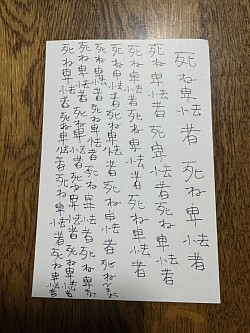 死ね卑怯者死ね卑怯者
死ね卑怯者死卑怯者死ね卑怯者
死ね卑怯者死ね卑怯者死ね卑怯者
死ね卑怯者死ね卑怯者死ね卑怯者
死ね卑怯者死ね卑怯者死ね卑怯者
死ね卑怯者死ね卑怯者死ね卑怯者死ね卑怯者
死ね卑怯者死ね卑怯者死ね卑怯者死ね卑怯者